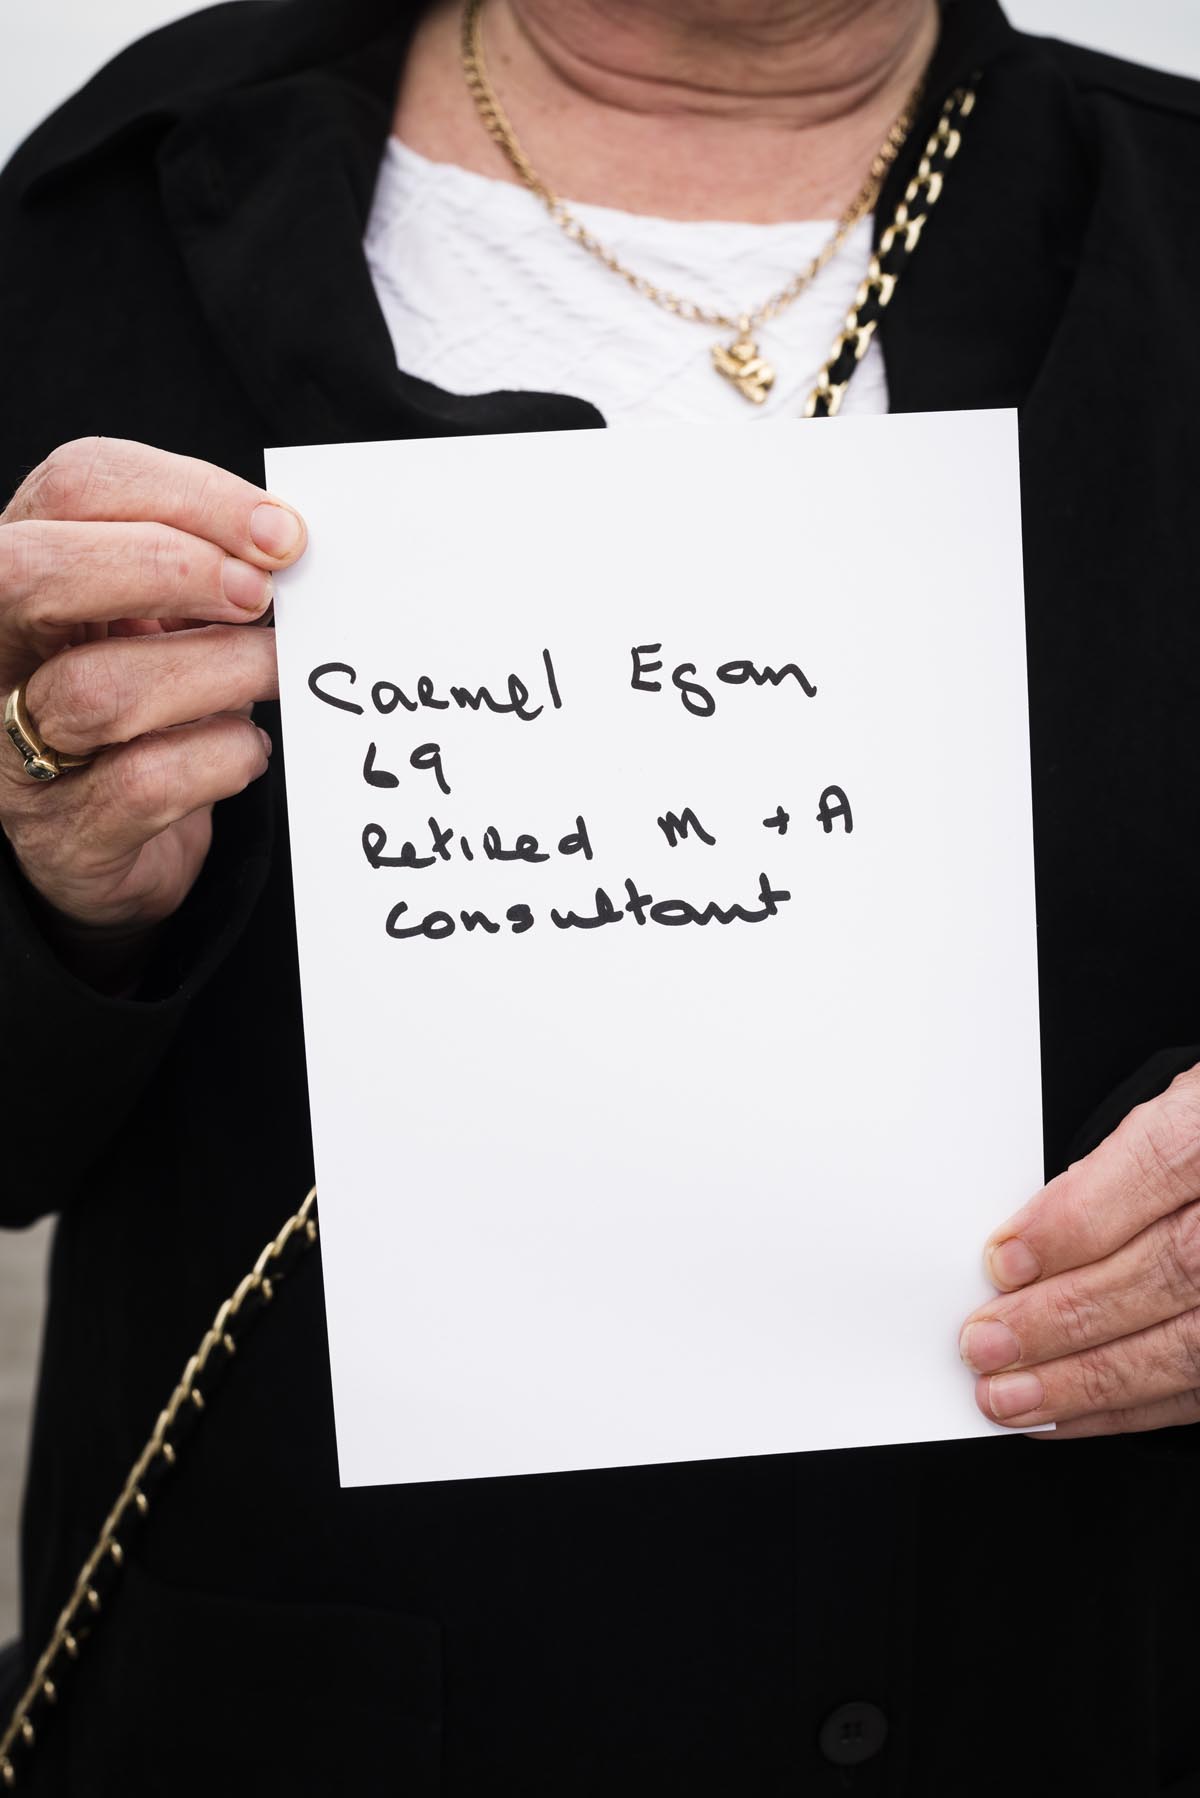 Carmel Egan
69
Retired M + A
Consultant